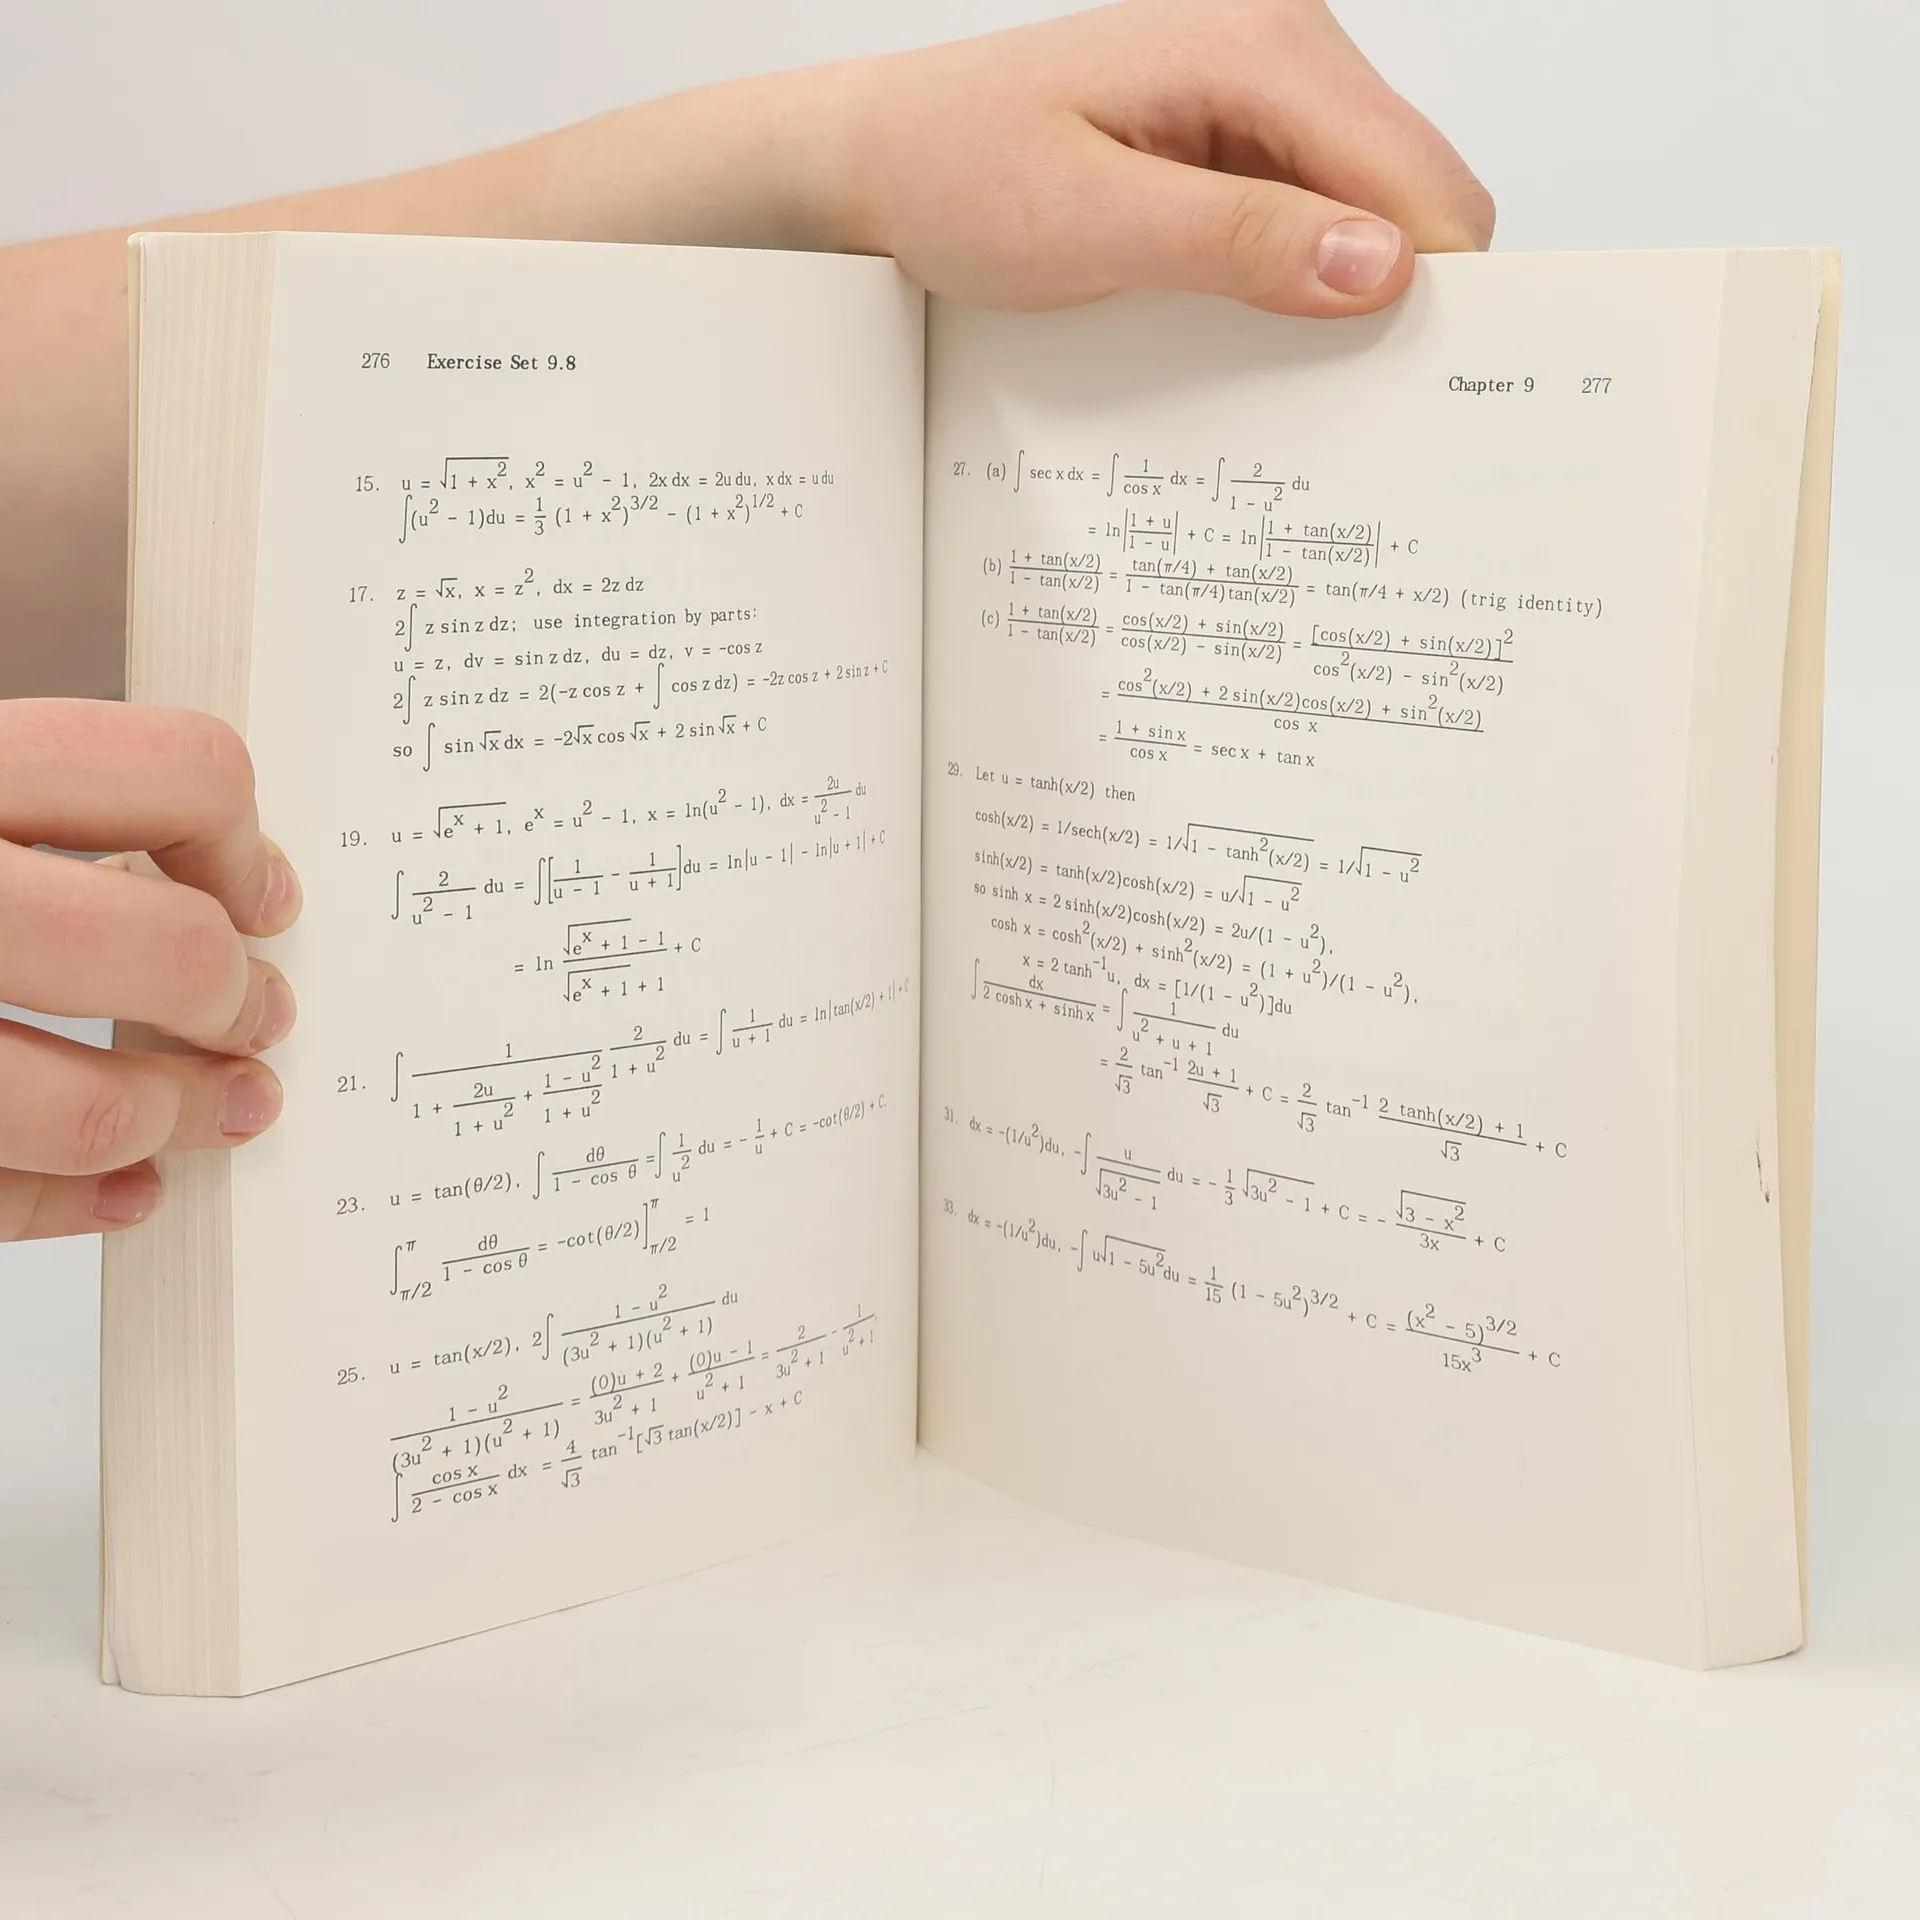 276 Exercise Set 9.8
15. u = √(1 + x²), x² = u² - 1, 2x dx = 2u du, x dx = u du
∫(u² - 1)du = 1/3 (1 + x²)^3/2 - (1 + x²)^1/2 + C
17. z = √x, x = z², dx = 2z dz
2∫ z sin z dz; use integration by parts:
u = z, dv = sin z dz, du = dz, v = -cos z
2∫ z sin z dz = 2(-z cos z + ∫ cos z dz) = -2z cos z + 2 sin z + C
so ∫ sin √x dx = -2√x cos √x + 2 sin √x + C
19. u = √(e^x + 1), e^x = u² - 1, x = ln(u² - 1), dx = 2u/(u² - 1) du
∫ 2/(u² - 1) du = ∫[1/(u - 1) - 1/(u + 1)]du = ln|u - 1| - ln|u + 1| + C
= ln (√(e^x + 1) - 1)/(√(e^x + 1) + 1) + C
21. ∫ 1/(1 + 2u/(1 + u²) + (1 - u²)/(1 + u²)) 2/(1 + u²) du = ∫ 1/(u + 1) du = ln|tan(x/2) + 1| + C
23. u = tan(θ/2), ∫ dθ/(1 - cos θ) = ∫ 1/u² du = - 1/u + C = -cot(θ/2) + C.
∫_π/2^π dθ/(1 - cos θ) = -cot(θ/2)]_π/2^π = 1
25. u = tan(x/2), 2∫ (1 - u²)/((3u² + 1)(u² + 1)) du
(1 - u²)/((3u² + 1)(u² + 1)) = ((0)u + 2)/(3u² + 1) + ((0)u - 1)/(u² + 1) = 2/(3u² + 1) - 1/(u² + 1),
∫ cos x/(2 - cos x) dx = 4/√3 tan⁻¹[√3 tan(x/2)] - x + C
Chapter 9 277
27. (a) ∫ sec x dx = ∫ 1/cos x dx = ∫ 2/(1 - u²) du
= ln|(1 + u)/(1 - u)| + C = ln|(1 + tan(x/2))/(1 - tan(x/2))| + C
(b) (1 + tan(x/2))/(1 - tan(x/2)) = (tan(π/4) + tan(x/2))/(1 - tan(π/4)tan(x/2)) = tan(π/4 + x/2) (trig identity)
(c) (1 + tan(x/2))/(1 - tan(x/2)) = (cos(x/2) + sin(x/2))/(cos(x/2) - sin(x/2)) = [cos(x/2) + sin(x/2)]²/(cos²(x/2) - sin²(x/2))
= (cos²(x/2) + 2 sin(x/2)cos(x/2) + sin²(x/2))/cos x
= (1 + sin x)/cos x = sec x + tan x
29. Let u = tanh(x/2) then
cosh(x/2) = 1/sech(x/2) = 1/√(1 - tanh²(x/2)) = 1/√(1 - u²)
sinh(x/2) = tanh(x/2)cosh(x/2) = u/√(1 - u²)
so sinh x = 2 sinh(x/2)cosh(x/2) = 2u/(1 - u²),
cosh x = cosh²(x/2) + sinh²(x/2) = (1 + u²)/(1 - u²),
x = 2 tanh⁻¹u, dx = [1/(1 - u²)]du
∫ dx/(2 cosh x + sinh x) = ∫ 1/(u² + u + 1) du
= 2/√3 tan⁻¹ (2u + 1)/√3 + C = 2/√3 tan⁻¹ (2 tanh(x/2) + 1)/√3 + C
31. dx = -(1/u²)du, -∫ u/√(3u² - 1) du = - 1/3 √(3u² - 1) + C = - √(3 - x²)/3x + C
33. dx = -(1/u²)du, -∫ u√(1 - 5u²)du = 1/15 (1 - 5u²)^3/2 + C = (x² - 5)^3/2/15x³ + C